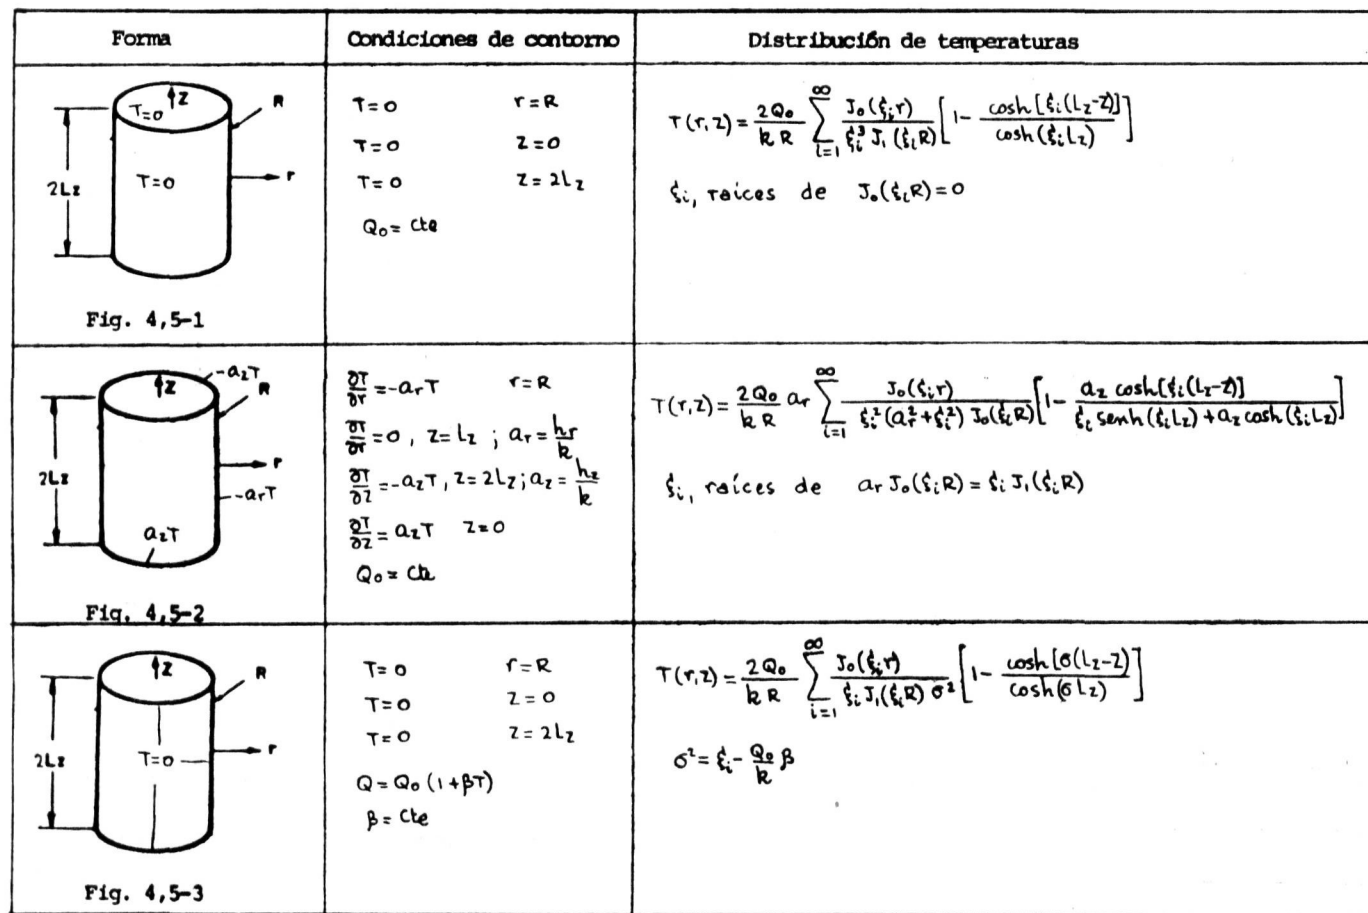 Forma
Condiciones de contorno
Distribución de temperaturas
T=0
z
R
2Lz
T=0
r
Fig. 4,5-1
T=0 r=R
T=0 z=0
T=0 z=2Lz
Q₀= cte
T(r,z) = 2Q₀/(k R) ∑_{i=1}^{∞} J₀(ξᵢr)/(ξᵢ³ J₁(ξᵢR)) [1 - cosh[ξᵢ(Lz-z)]/cosh(ξᵢLz)]
ξᵢ, raíces de J₀(ξᵢR)=0
z
-a_zT
R
2Lz
r
-a_rT
a_zT
Fig. 4,5-2
∂T/∂r = -a_rT r=R
∂T/∂r = 0, z=Lz ; a_r = h_r/k
∂T/∂z = -a_zT, z=2Lz; a_z = h_z/k
∂T/∂z = a_zT z=0
Q₀ = Cte
T(r,z) = 2Q₀/(k R) a_r ∑_{i=1}^{∞} J₀(ξᵢr)/(ξᵢ²(a_r²+ξᵢ²) J₀(ξᵢR)) [1 - a_z cosh[ξᵢ(Lz-z)]/(ξᵢ senh(ξᵢLz) + a_z cosh(ξᵢLz)]
ξᵢ, raíces de a_r J₀(ξᵢR) = ξᵢ J₁(ξᵢR)
z
R
2Lz
T=0
r
Fig. 4,5-3
T=0 r=R
T=0 z=0
T=0 z=2Lz
Q = Q₀ (1+βT)
β = Cte
T(r,z) = 2Q₀/(k R) ∑_{i=1}^{∞} J₀(ξᵢr)/(ξᵢ J₁(ξᵢR) σ²) [1 - cosh[σ(Lz-z)]/cosh(σLz)]
σ² = ξᵢ - Q₀/k β